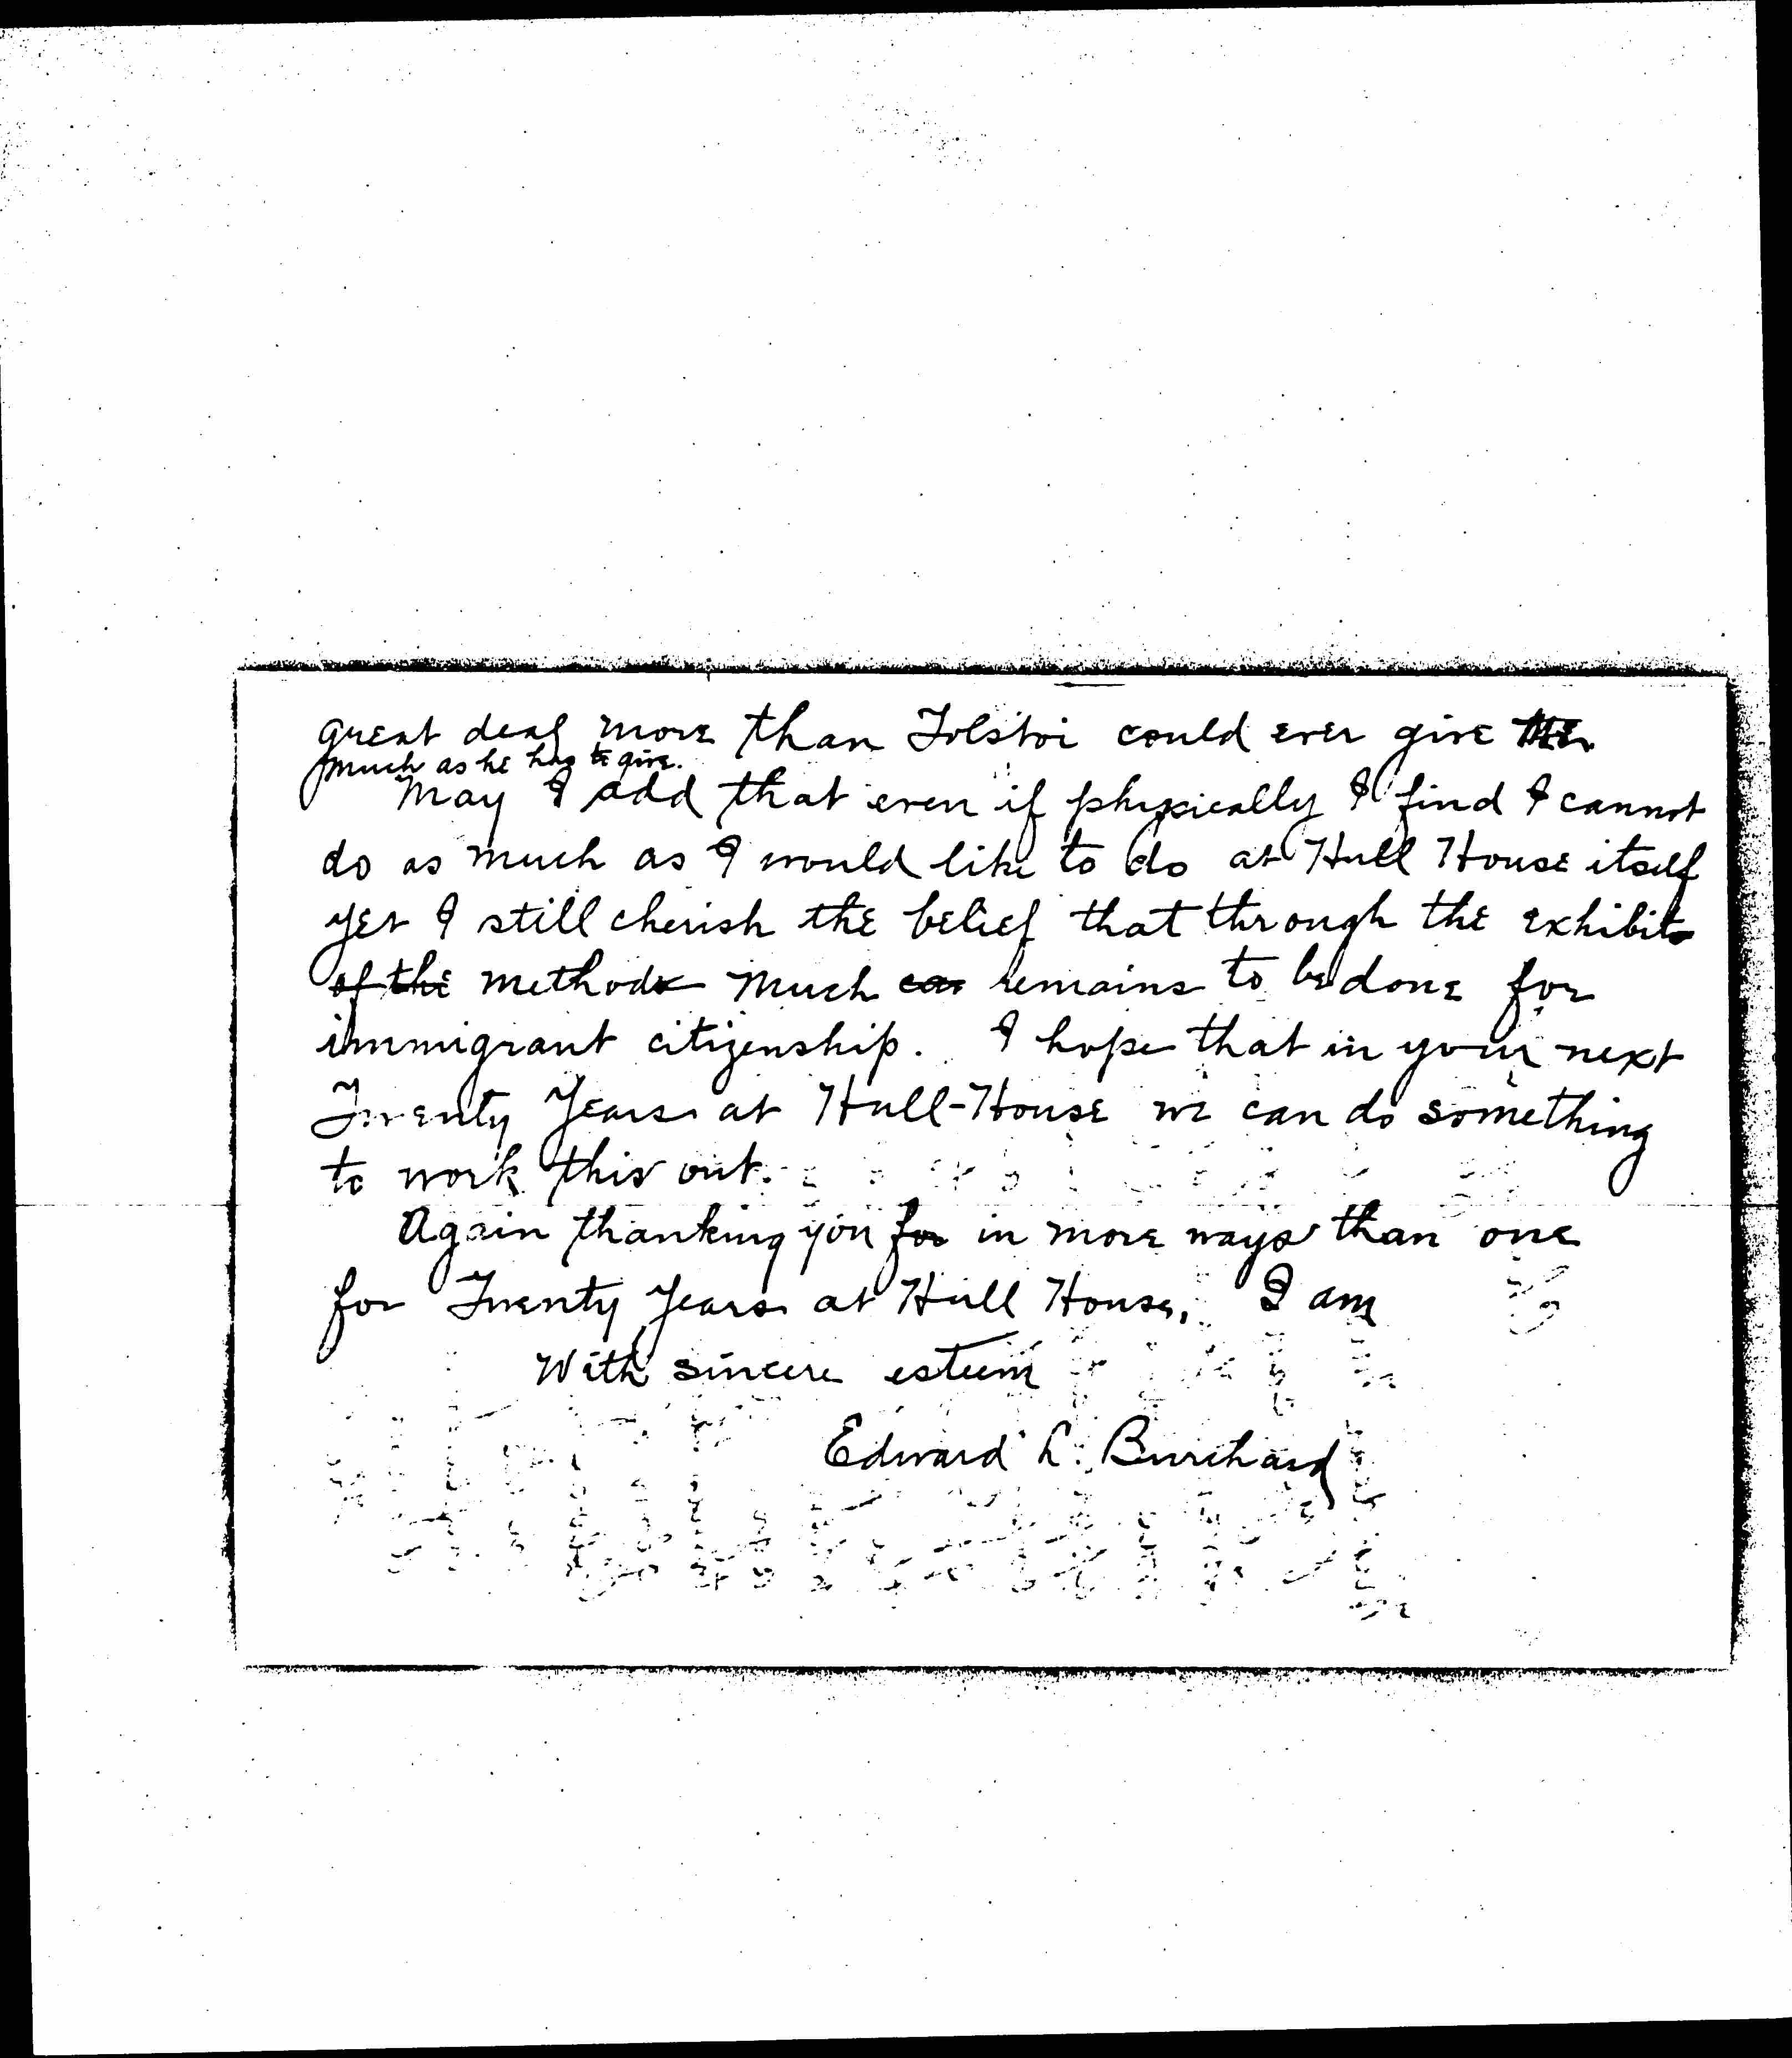 great deal more than Tolstoi could ever give
much as he has to give.
May I add that even if physically I find I cannot
do as much as I would like to do at Hull House itself
yet I still cherish the belief that through the exhibit
of the method much can remains to be done for
immigrant citizenship. I hope that in your next
Twenty Years at Hull-House we can do something
to work this out.
Again thanking you for in more ways than one
for Twenty Years at Hull House, I am
With sincere esteem
Edward L. Burchard